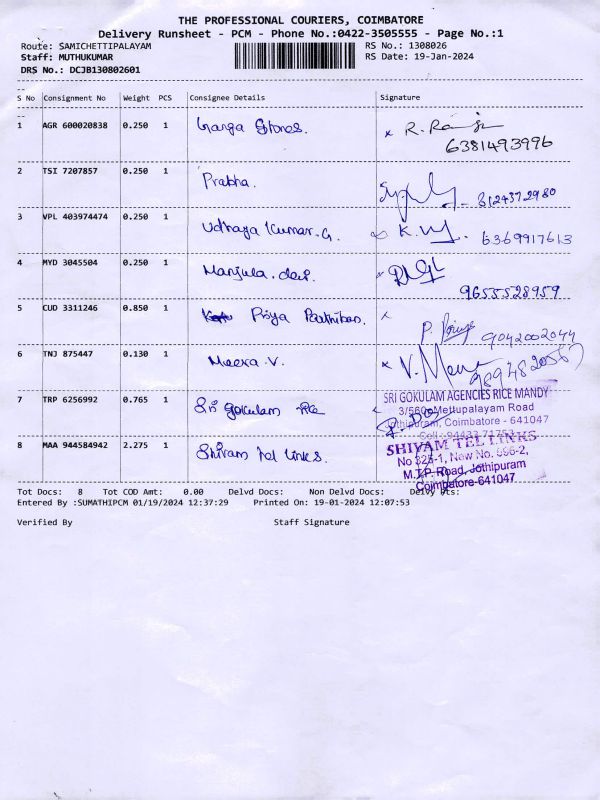 THE PROFESSIONAL COURIERS, COIMBATORE
Delivery Runsheet - PCM - Phone No.:0422-3505555 - Page No.:1
Route: SAMICHETTIPALAYAM RS No.: 1308026
Staff: MUTHUKUMAR RS Date: 19-Jan-2024
DRS No.: DCJB130802601
S No Consignment No Weight PCS Consignee Details Signature
1 AGR 600020838 0.250 1 Ganga Stores. x R. 
6381493996
2 TSI 7207857 0.250 1 Prabha. 8124372980
3 VPL 403974474 0.250 1 Udhaya Kumar.G. K. 6369917613
4 MYD 3045504 0.250 1 Manjula.devi.
9655528959
5 CUD 3311246 0.850 1 Priya Parthiban. x
P. Priya 9042002044
6 TNJ 875447 0.130 1 Meera.V. x V. Meera 9894820567
7 TRP 6256992 0.765 1 Sri gokulam Rice
SRI GOKULAM AGENCIES RICE MANDY
3/560, Mettupalayam Road
Jothipuram, Coimbatore - 641047
Cell : 94433 71753
8 MAA 944584942 2.275 1 Shivam Tel links.
SHIVAM TEL LINKS
No 325-1, New No. 556-2,
M.T.P. Road, Jothipuram
Coimbatore-641047
Tot Docs: 8 Tot COD Amt: 0.00 Delvd Docs: Non Delvd Docs: Delvy Pts:
Entered By :SUMATHIPCM 01/19/2024 12:37:29 Printed On: 19-01-2024 12:07:53
Verified By Staff Signature